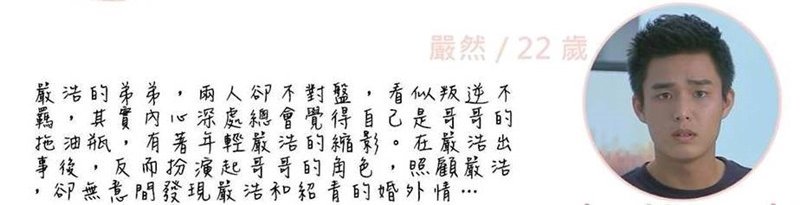 嚴然 / 22 歲
嚴浩的弟弟，兩人卻不對盤，看似叛逆不
羈，其實內心深處總會覺得自己是哥哥的
拖油瓶，有著年輕嚴浩的縮影。在嚴浩出
事後，反而扮演起哥哥的角色，照顧嚴浩
，卻無意間發現嚴浩和紹青的婚外情…